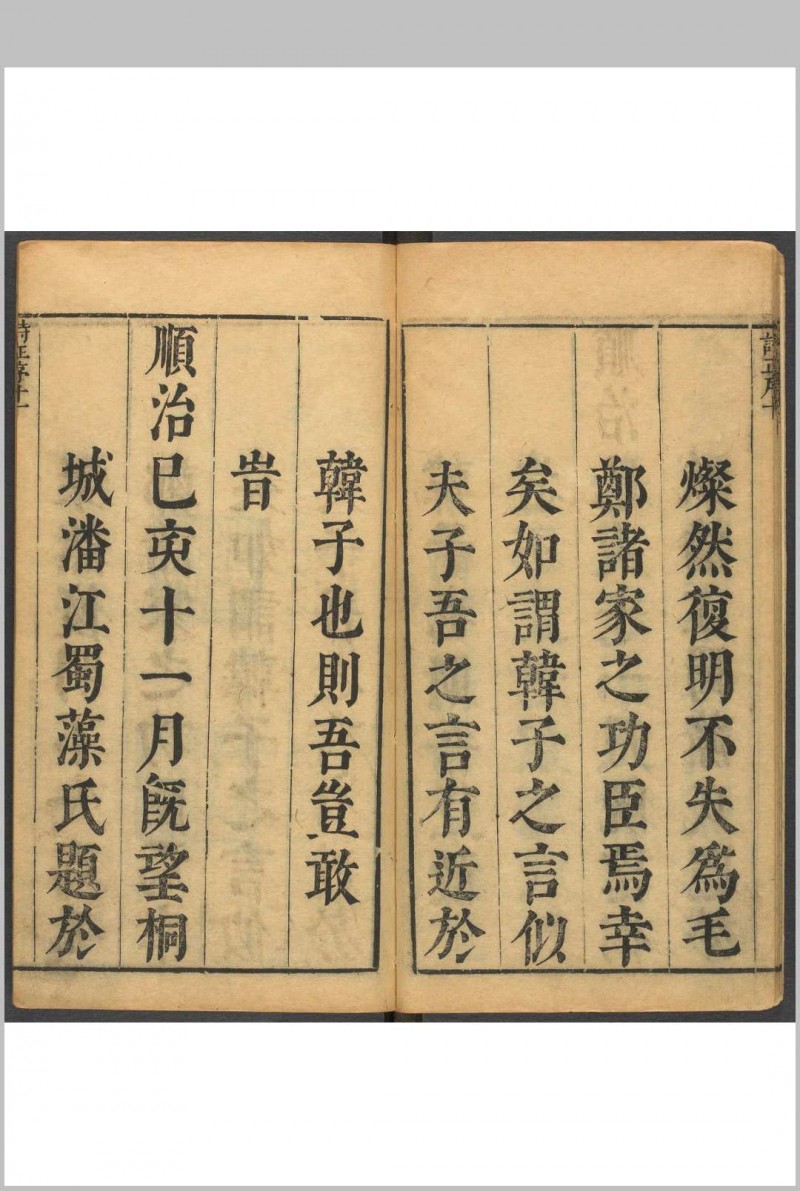 燦然復明不失為毛
鄭諸家之功臣焉幸
矣如謂韓子之言似
夫子吾之言有近於
韓子也則吾豈敢
旹
順治已亥十一月既望桐
城潘江蜀藻氏題於